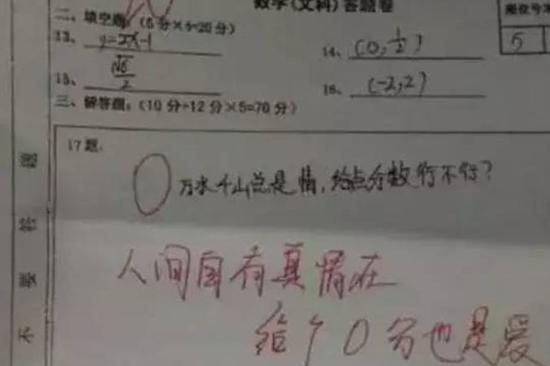 数学(文科)答题卷
座位号
5
二、填空题:(5分×4=20分)
13、 y=2x-1 14、 (0, 1/2)
15、 √6/2 16、 (-2,2)
三、解答题:(10分+12分×5=70分)
17题:
0 万水千山总是情,给点分数行不行?
人间自有真情在
给个0分也是爱
题
答
要
不